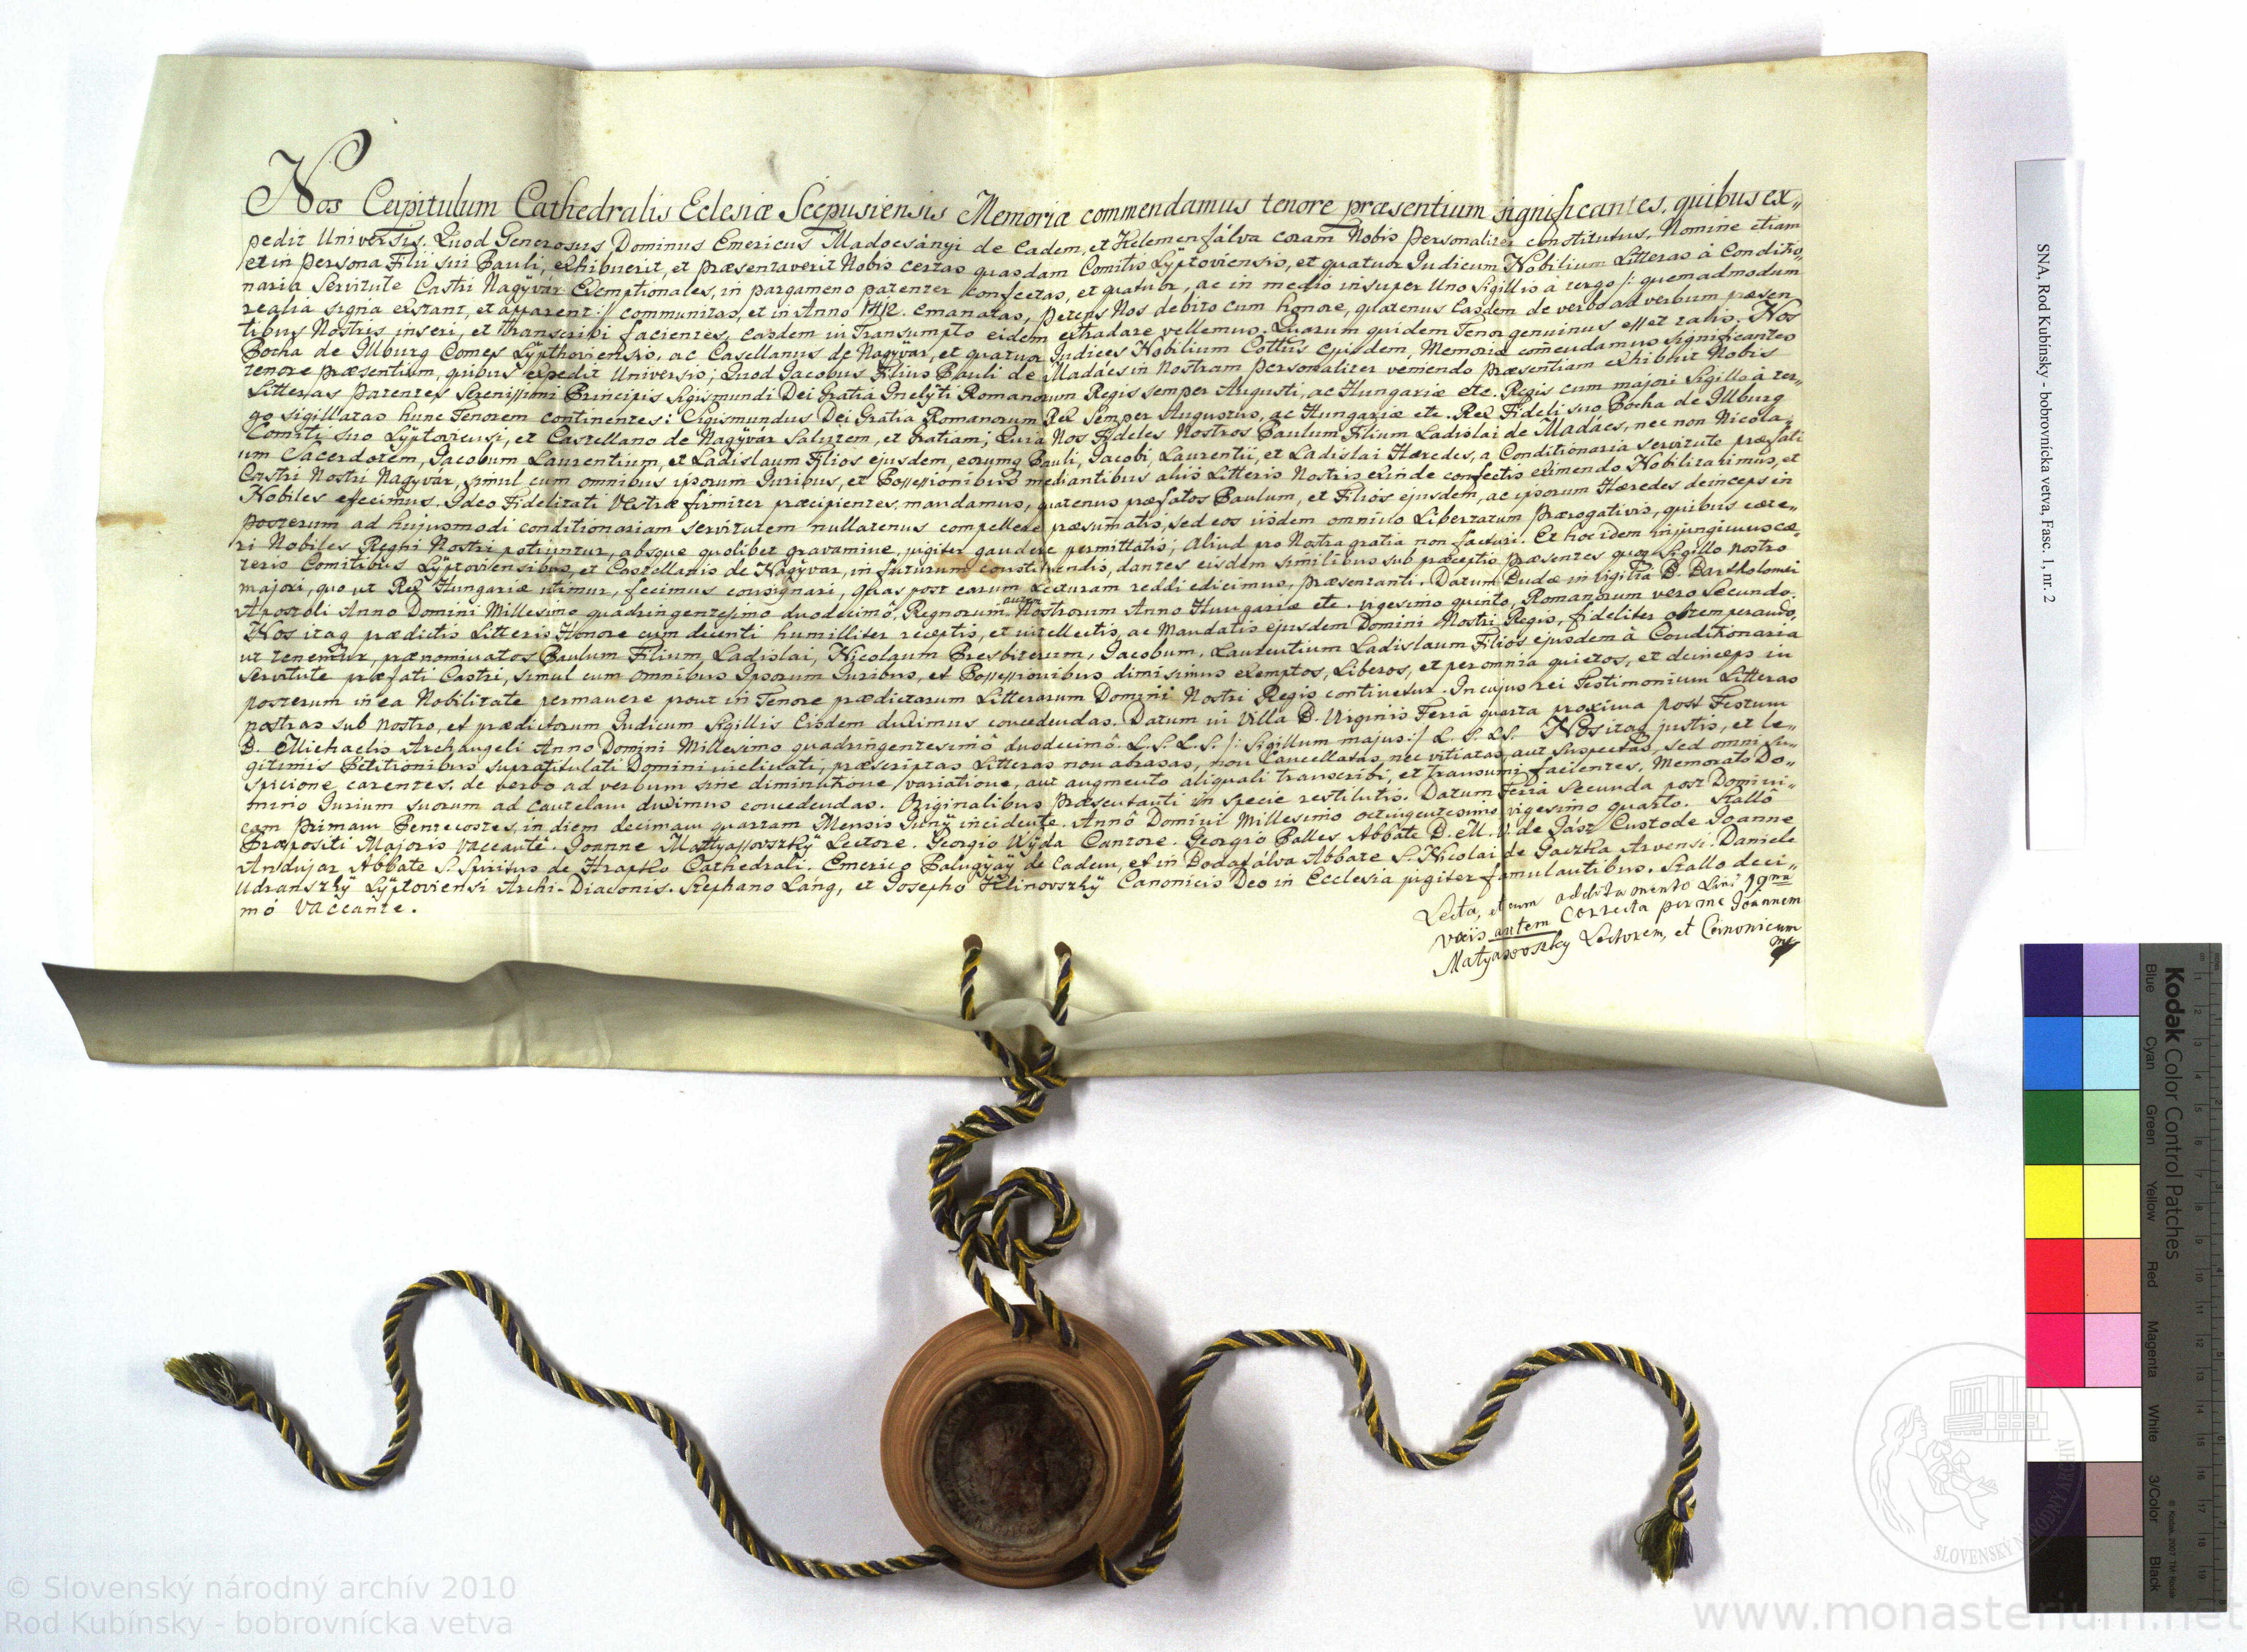 Nos Capitulum Cathedralis Eclesiæ Scepusiensis Memoriæ commendamus tenore præsentium significantes, quibus ex„
pedit Universis. Quod Generosus Dominus Emericus Madocsányi de Eadem, et Kelemenfálva coram Nobis Personaliter constitutus, Nomine etiam
et in Persona Filii sui Pauli, exhibuerit, et præsentaverit Nobis certas quasdam Comitis Lÿptoviensis, et quatuor Judicum Nobilium Litteras à Conditio„
naria Servitute Castri Nagÿvár Exemptionales, in pargameno patenter confectas, et quatuor, ac in medio insuper Uno Sigillis à tergo /: quemadmodum
realia signa extant, et apparent :/ communitas, et in Anno 1412. emanatas, petens Nos debito cum honore, quatenus Easdem de verbo ad verbum præsen„
tibus Nostris inseri, et transcribi facientes, easdem in Transumpto eidem extradare vellemus. Quarum quidem Tenor genuinus esset talis. Nos
Bocha de Ilburg Comes Lÿpthoviensis, ac Casellanus de Nagÿvár, et quatuor Judices Nobilium Cottûs Ejusdem, Memoriæ com̃endamus significantes
tenore præsentium, quibus expedit Universis; Quod Jacobus Filius Pauli de Madács in Nostram Personaliter veniendo Præsentiam exhibuit Nobis
Litteras Patentes Serenissimi Principis Sigismundi Dei Gratia Inclÿti Romanorum Regis semper Augusti, ac Hungariæ etc. Regis cum majori Sigillo à ter„
go sigillatas hunc Tenorem continentes: Sigismundus Dei Gratia Romanorum Rex Semper Augustus, ac Hungariæ etc. Rex Fideli suo Bocha de Ilburg
Comiti suo Lÿptoviensi, et Castellano de Nagÿvár Salutem, et Gratiam; Quia Nos Fideles Nostros Paulum Filium Ladislai de Madács, nec non Nicola„
um Sacerdotem, Jacobum Laurentium, et Ladislaum Filios ejusdem, eorumq Pauli, Jacobi, Laurentii, et Ladislai Hæredes, a Conditionaria servitute præfati
Castri Nostri Nagÿvár, simul cum omnibus ipsorum Juribus, et Possessionibus mediantibus aliis Litteris Nostris exinde confectis eximendo Nobilitavimus, et
Nobiles effecimus. Ideo Fidelitati Vestræ firmiter præcipientes, mandamus, quatenus præfatos Paulum, et Filios ejusdem, ac ipsorum Hæredes deinceps in
posterum ad hujusmodi conditionariam servitutem nullatenus compellere præsumatis, sed eos iisdem omnino Libertatum Prærogativis, quibus cæte„
ri Nobiles Regni Nostri potiuntur, absque quolibet gravamine, jugiter gaudere permittatis; Aliud pro Nostra gratia non facturi. Et hoc idem injungimus cæ„
teris Comitibus Lÿptoviensibus, et Castellanis de Nagÿvar, in futurum constituendis, dantes eisdem similibus sub præceptis Præsentes quoq Sigillo nostro
majori, quo ut Rex Hungariæ utimur, fecimus consignari, Quas post earum Lecturam reddi edicimus, Præsentanti. Datum Budæ in vigilia B. Bartholomei
Apostoli Anno Domini Millesimo quadringentesimo duodecimô, Regnorum autem Nostrorum Anno Hungariæ etc. vigesimo quinto, Romanorum vero Secundo.
Nos itaq prædictis Litteris Honore cum decenti humilliter receptis, et intellectis, ac Mandatis ejusdem Domini Nostri Regis, fideliter obtemperando,
ut tenemur, prænominatos Paulum Filium Ladislai, Nicolaum Presbiterum, Jacobum, Laurentium Ladislaum Filios ejusdem à Conditionaria
Servitute præfati Castri, simul cum omnibus Ipsorum Juribus, et Possessionibus dimisimus exemptos, Liberos, et per omnia quietos, et deinceps in
posterum in ea Nobilitate permanere prout in Tenore prædictarum Litterarum Domini Nostri Regis continetur. In cujus rei Testimonium Litteras
nostras sub nostro, et prædictorum Judicum Sigillis Eisdem duximus concedendas. Datum in Villa B. Virginis Feria quarta proxima post Festum
B. Michaelis Archangeli Anno Domini Millesimo quadringentesimô duodecimô. L. S. L. S. /: Sigillum majus :/ L. S. L. S. Nos itaq justis, et le„
gitimis Petitionibus supratitulati Domini inclinati, præscriptas Litteras non abrasas, non Cancellatas, nec vitiatas, aut Suspectas, sed omni su„
spicione carentes, de verbo ad verbum sine diminutione, variatione, aut augmento aliquali transcribi, et transumi facientes, Memorato Do„
mino Jurium suorum ad cautelam duximus concedendas. Originalibus Præsentanti in specie restitutis. Datum Feria Secunda post Domini„
cam Primam Pentecostes, in diem decimam quartam Mensis Junÿ incidente. Annô Domini Millesimo octingentesimo vigesimo quarto. Stallô
Præpositi Majoris vaccante. Joanne Mattyassovszkÿ Lectore. Georgio Wÿda Cantore. Georgio Palles Abbate B. M. V. de Jász Custode Joanne
Andujar Abbate S. Spiritus de Hrapko Cathedrali. Emerico Palugÿaÿ de Eadem, et in Bodafálva Abbate S. Nicolai de Gaczka Arvensi. Daniele
Udranszkÿ Lÿptoviensi Archi-Diaconis. Stephano Lang, et Josepho Klinovszkÿ Canonicis Deo in Ecclesia jugiter famulantibus. Stallo deci„
mô vaccante.
Lecta, et cum additamento Lini 19na
vocis autem Correcta per me Joannem
Matyasovszky Lectorem, et Canonicum
mp
SNA, Rod Kubínsky - bobrovnícka vetva, Fasc. 1, nr. 2
Kodak Color Control Patches
Blue Cyan Green Yellow Red Magenta White 3/Color Black
© Kodak, 2007 TM: Kodak
SLOVENSKÝ NÁRODNÝ ARCHÍV
© Slovenský národný archív 2010
Rod Kubínsky - bobrovnícka vetva
www.monasterium.net